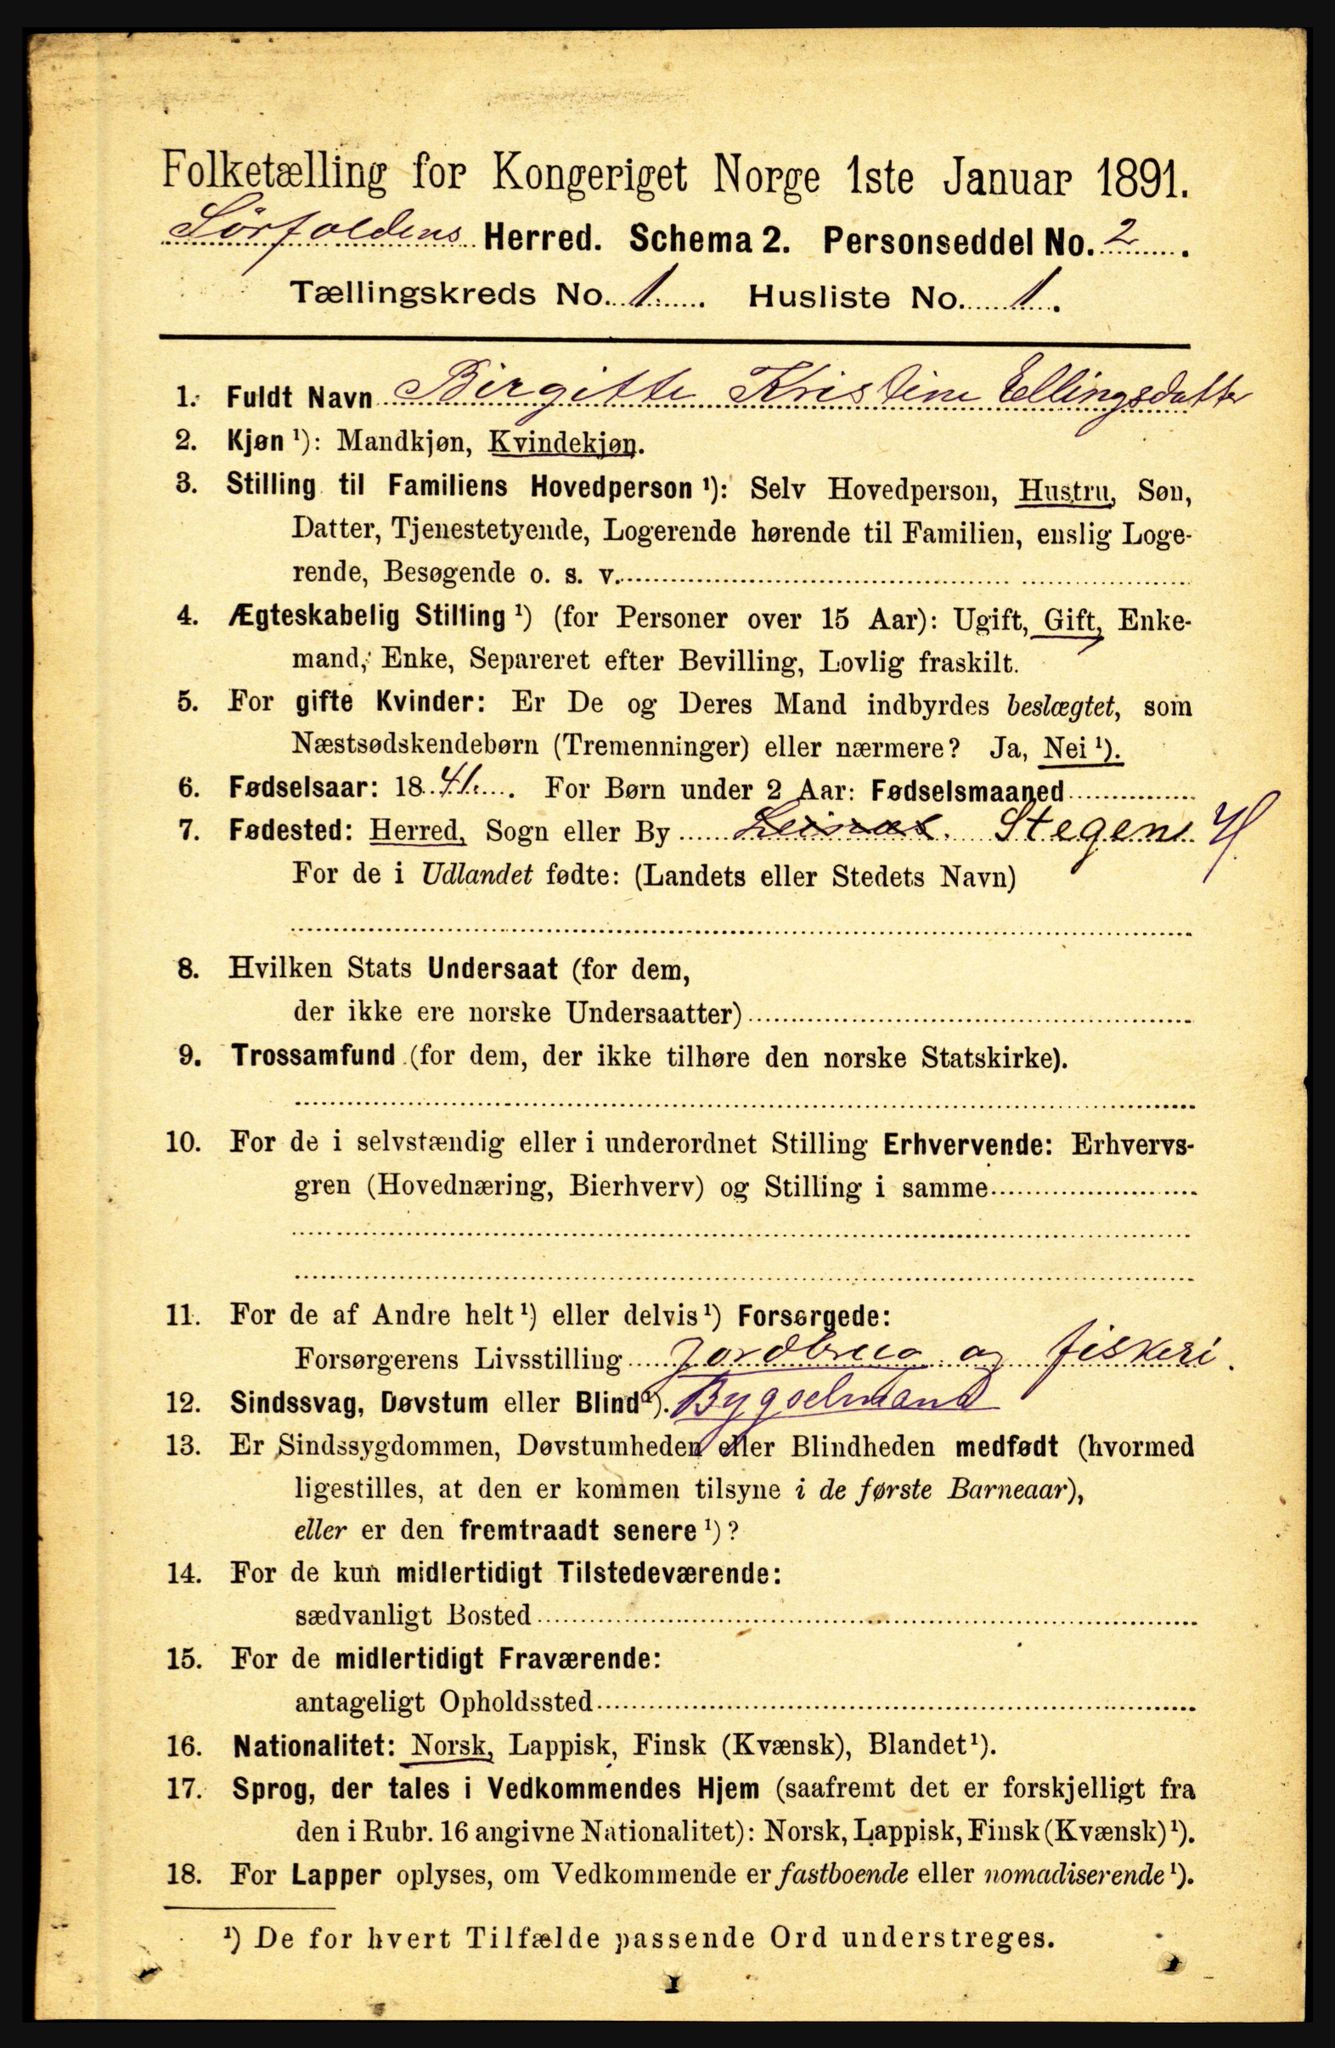 Folketælling for Kongeriget Norge 1ste Januar 1891.
Sörfoldens Herred. Schema 2. Personseddel No. 2.
Tællingskreds No. 1. Husliste No. 1.
1. Fuldt Navn Birgitte Kristine Ellingsdatter
2. Kjøn ¹): Mandkjøn, Kvindekjøn.
3. Stilling til Familiens Hovedperson ¹): Selv Hovedperson, Hustru, Søn,
Datter, Tjenestetyende, Logerende hørende til Familien, enslig Loge-
rende, Besøgende o. s. v.
4. Ægteskabelig Stilling ¹) (for Personer over 15 Aar): Ugift, Gift, Enke-
mand, Enke, Separeret efter Bevilling, Lovlig fraskilt.
5. For gifte Kvinder: Er De og Deres Mand indbyrdes beslægtet, som
Næstsødskendebørn (Tremenninger) eller nærmere? Ja, Nei ¹).
6. Fødselsaar: 1841. For Børn under 2 Aar: Fødselsmaaned
7. Fødested: Herred, Sogn eller By Leinæs. Stegens H
For de i Udlandet fødte: (Landets eller Stedets Navn)
8. Hvilken Stats Undersaat (for dem,
der ikke ere norske Undersaatter)
9. Trossamfund (for dem, der ikke tilhøre den norske Statskirke).
10. For de i selvstændig eller i underordnet Stilling Erhvervende: Erhvervs-
gren (Hovednæring, Bierhverv) og Stilling i samme
11. For de af Andre helt ¹) eller delvis ¹) Forsørgede:
Forsørgerens Livsstilling Jordbrug og fiskeri.
12. Sindssvag, Døvstum eller Blind ¹). Bygselmand
13. Er Sindssygdommen, Døvstumheden eller Blindheden medfødt (hvormed
ligestilles, at den er kommen tilsyne i de første Barneaar),
eller er den fremtraadt senere ¹)?
14. For de kun midlertidigt Tilstedeværende:
sædvanligt Bosted
15. For de midlertidigt Fraværende:
antageligt Opholdssted
16. Nationalitet: Norsk, Lappisk, Finsk (Kvænsk), Blandet ¹).
17. Sprog, der tales i Vedkommendes Hjem (saafremt det er forskjelligt fra
den i Rubr. 16 angivne Nationalitet): Norsk, Lappisk, Finsk (Kvænsk) ¹).
18. For Lapper oplyses, om Vedkommende er fastboende eller nomadiserende ¹).
¹) De for hvert Tilfælde passende Ord understreges.